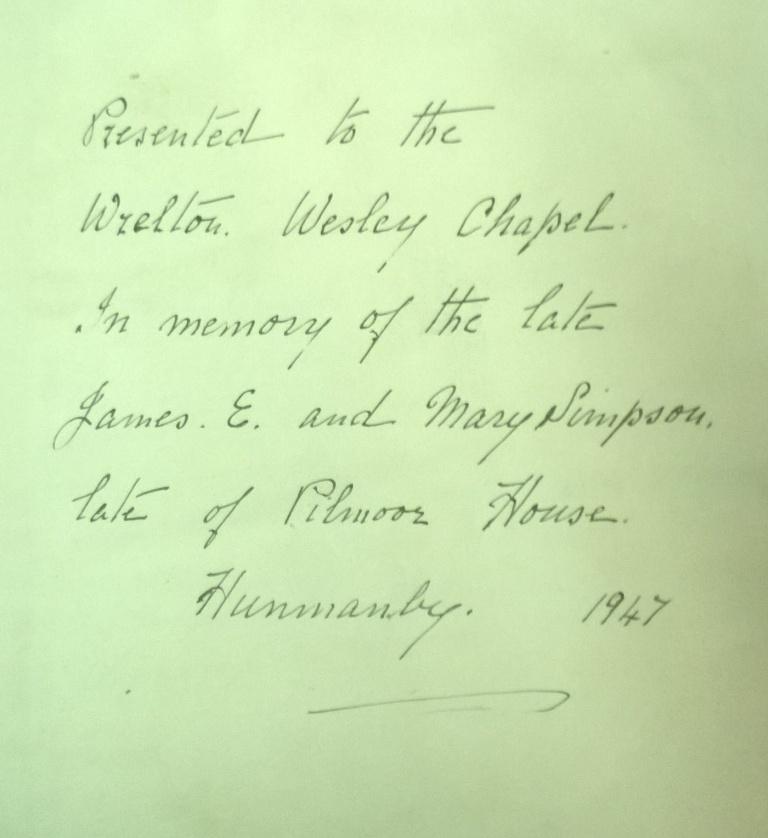 Presented to the
Wrelton. Wesley Chapel.
In memory of the late
James. E. and Mary Simpson.
late of Pilmoor House.
Hunmanby. 1947